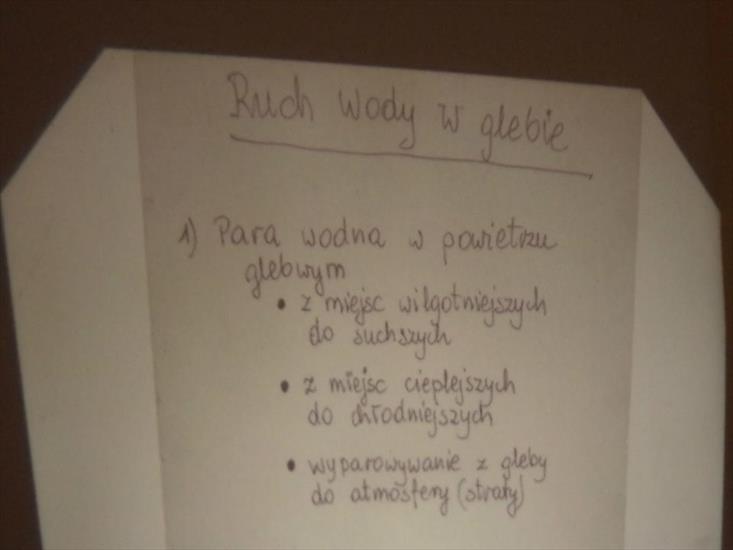 Ruch wody w glebie
1) Para wodna w powietrzu
glebwym
• z miejsc wilgotniejszych
do suchszych
• z miejsc cieplejszych
do chłodniejszych
• wyparowywanie z gleby
do atmosfery (straty)